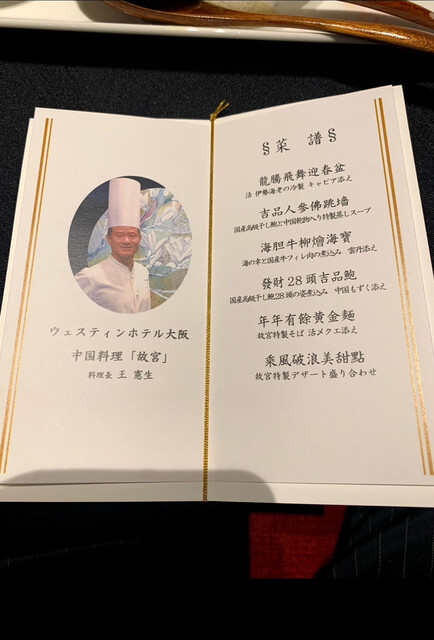 ウェスティンホテル大阪
中国料理「故宮」
料理長 王 憲生
§菜 譜§
龍騰飛舞迎春盆
活 伊勢海老の冷製 キャビア添え
吉品人參佛跳墻
国産高級干し鮑と中国乾物入り特製蒸しスープ
海胆牛柳燴海寶
海の幸と国産牛フィレ肉の煮込み 雲丹添え
發財28頭吉品鮑
国産高級干し鮑28頭の姿煮込み 中国もずく添え
年年有餘黄金麵
故宮特製そば 活メクエ添え
乘風破浪美甜點
故宮特製デザート盛り合わせ